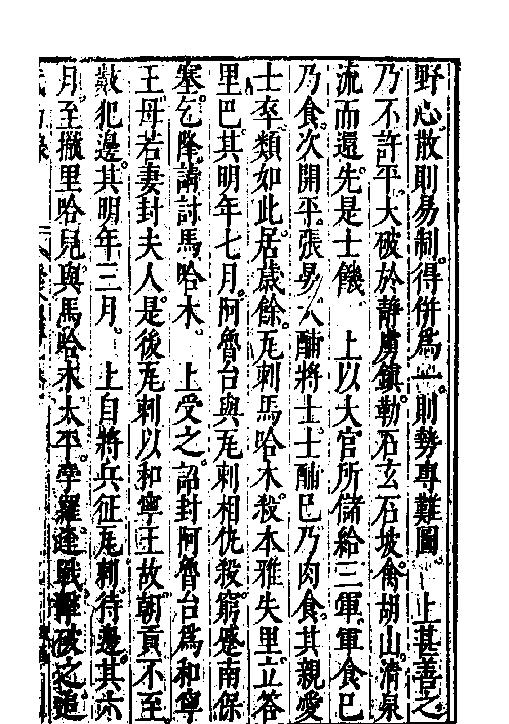 野心散則易制得併為一則勢專難圖　上甚善之
乃不許平大破於靜虜鎮勒石玄石坡禽胡山清泉
流而還先是士饑　上以大官所儲給三軍軍食已
乃食次開平張宴大酺將士士酺已乃肉食其親愛
士卒類如此居歲餘瓦剌馬哈木殺本雅失里立答
里巴其明年七月阿魯台與瓦剌相仇殺窮蹙南保
塞乞降請討馬哈木　上受之詔封阿魯台為和寧
王母若妻封夫人是後瓦剌以和寧王故朝貢不至
數犯邊其明年三月　上自將兵征瓦剌待邊其六
月至撒里哈兒與馬哈木太平孛羅逢戰擊破之追